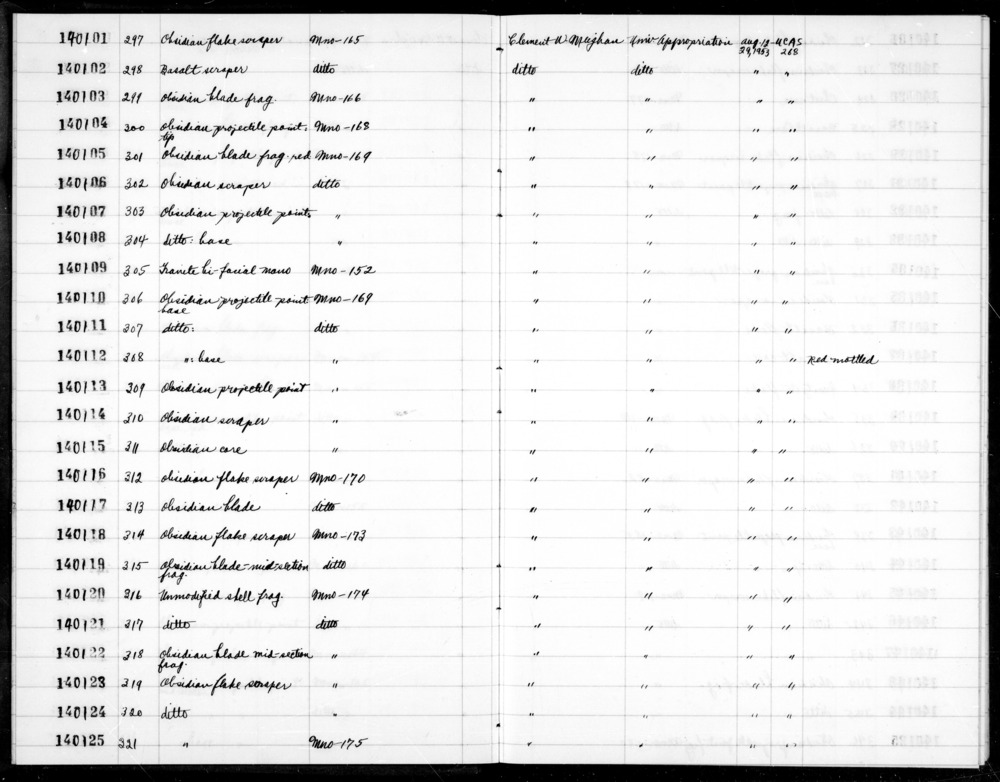 140101 297 Obsidian flake scraper Mno-165 Clement W. Meighan Univ. Appropriation Aug. 10- UCAS
29, 1953 268
140102 298 Basalt scraper ditto ditto ditto " "
140103 299 Obsidian blade frag. Mno-166 " " " "
140104 300 Obsidian projectile point. Mno-168 " " " "
tip
140105 301 Obsidian blade frag-red Mno-169 " " " "
140106 302 Obsidian scraper ditto " " " "
140107 303 Obsidian projectile point. " " " " "
140108 304 ditto: base " " " " "
140109 305 Granite bi-facial mano Mno-152 " " " "
140110 306 Obsidian projectile point Mno-169 " " " "
base
140111 307 ditto: ditto " " " "
140112 308 ": base " " " " " Red-mottled
140113 309 Obsidian projectile point " " " " "
140114 310 Obsidian scraper " " " " "
140115 311 Obsidian core " " " " "
140116 312 Obsidian flake scraper Mno-170 " " " "
140117 313 Obsidian blade ditto " " " "
140118 314 Obsidian flake scraper Mno-173 " " " "
140119 315 Obsidian blade-mid-section ditto " " " "
frag.
140120 316 Unmodified shell frag. Mno-174 " " " "
140121 317 ditto ditto " " " "
140122 318 Obsidian blade mid-section " " " " "
frag.
140123 319 Obsidian flake scraper " " " " "
140124 320 ditto " " " " "
140125 321 " Mno-175 " " " "